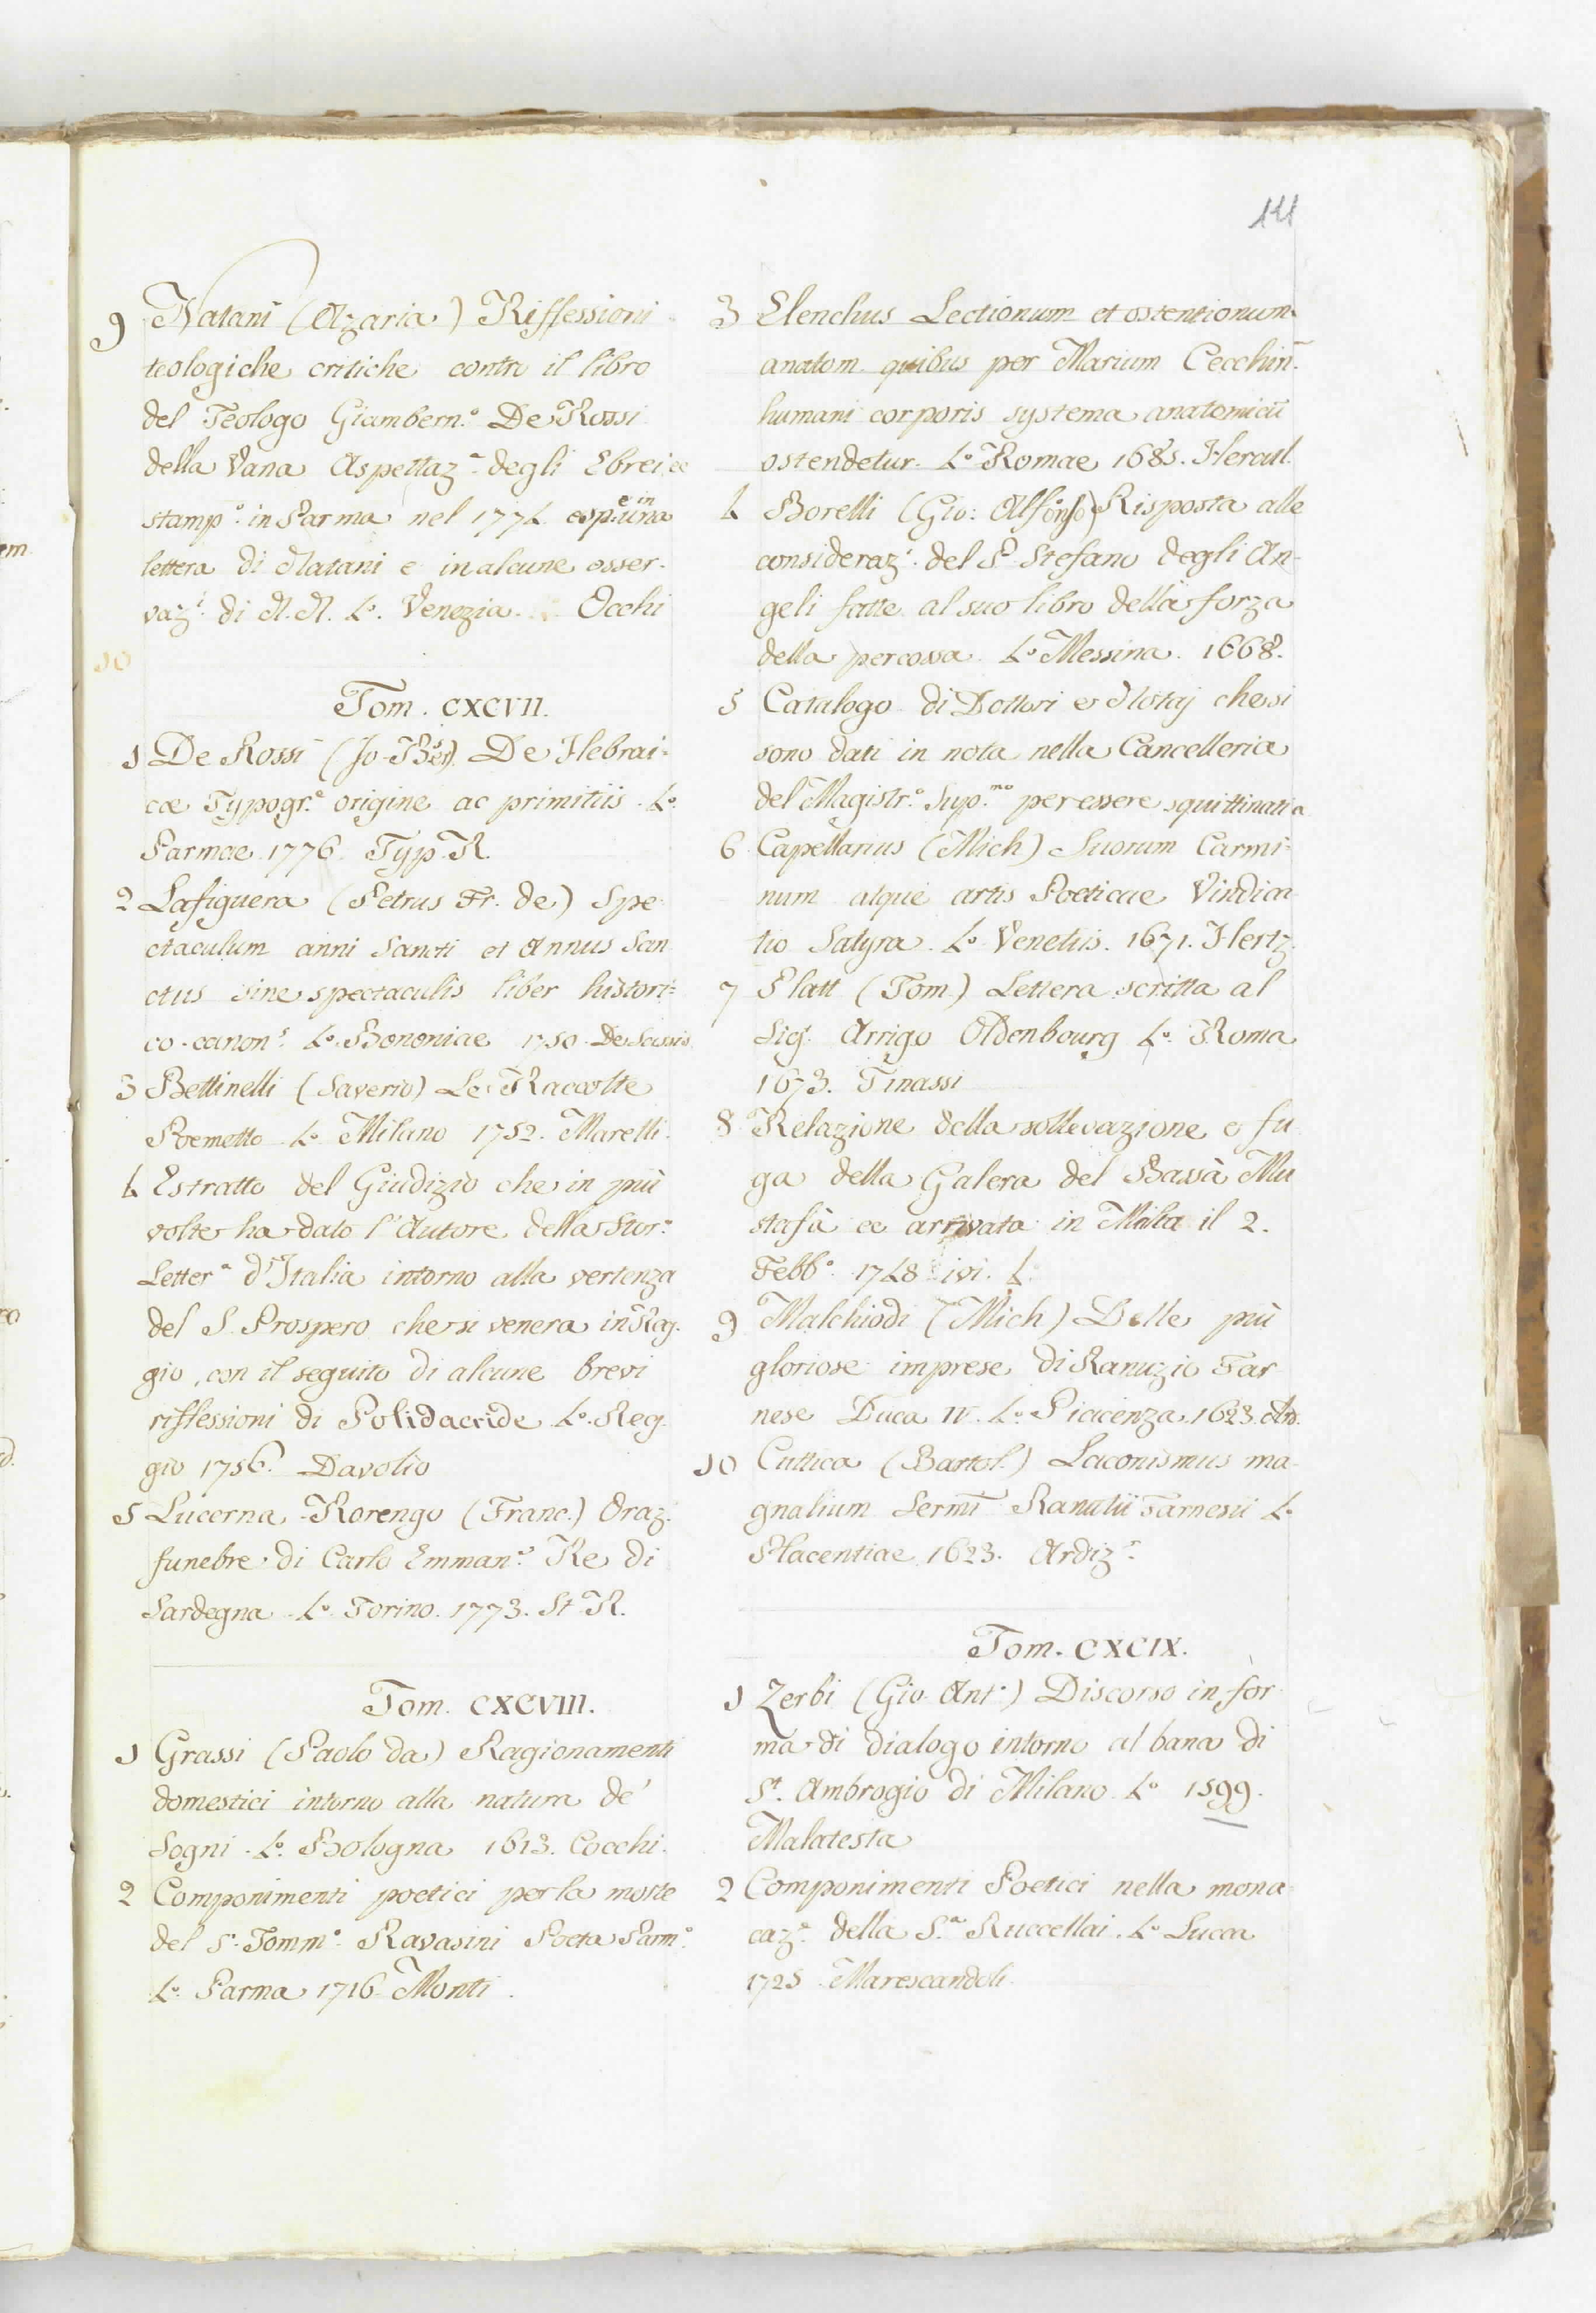 111
9 Natani (Azaria) Riflessioni
teologiche critiche contro il libro
del Teologo Giambern.º De Rossi
della Vana Aspettaz.e degli Ebrei ec
stamp.º in Parma nel 1774. esp.e in una
lettera di Natani e in alcune osser-
vaz.i di N.N. 4.º Venezia. Occhi
10
Tom. CXCVII.
1 De Rossi (Jo-Ber.) De Hebrai=
cæ Typogr.e origine ac primitiis. 4.º
Parmae 1776. Typ. R.
2 Lafiguera (Petrus Fr. de) Spe
ctaculum anni Sancti et Annus San
ctus sine spectaculis liber histori=
co-canon.s 4.º Bononiae 1750. De
3 Bettinelli (Saverio) Le Raccolte
Poemetto 4.º Milano 1752. Marelli.
4 Estratto del Giudizio che in più
volte ha dato l'Autore della Stor.a
Letter.a d'Italia intorno alla vertenza
del S. Prospero che si venera in Reg-
gio, con il seguito di alcune brevi
riflessioni di Polidacride 4.º Reg
gio 1756. Davolio
5 Lucerna-Rorengo (Franc.) Oraz.
funebre di Carlo Emman.e Re di
Sardegna 4.º Torino. 1773. St. R.
Tom. CXCVIII.
1 Grassi (Paolo da) Ragionamenti
domestici intorno alla natura de'
Sogni. 4.º Bologna 1613. Cocchi.
2 Componimenti poetici per la morte
del S.r Tomm.º Ravasini Poeta Parm.º
4.º Parma 1716 Monti.
3 Elenchus Lectionum et ostentionum
anatom. quibus per Marium Cecchin.
humani corporis systema anatomicū
ostendetur. 4.º Romae 1685. Hercul.
4 Borelli (Gio: Alfonso) Risposta alle
consideraz.i del P. Stefano degli An-
geli fatte al suo libro della forza
della percossa 4.º Messina. 1668.
5 Catalogo di Dottori e Notaj che si
sono dati in nota nella Cancelleria
del Magistr.º Sup.mo per essere squittinati
6 Capellarius (Mich) Suorum Carmi=
num atque artis Poeticae Vindica
tio Satyra. 4.º Venetiis. 1671. Hertz.
7 Platt (Tom.) Lettera scritta al
Sig. Arrigo Oldenbourg 4.º Roma
1673. Tinassi
8 Relazione della sollevazione e fu
ga della Galera del Bassà Mu
stafà ec arrivata in Malta il 2.
Febb.º 1748 ivi. 4.
9 Malchiodi (Mich) Delle più
gloriose imprese di Ranuzio Far
nese Duca IV. 4.º Piacenza 1623.
10 Cuttica (Bartol.) Laconismus ma-
gnalium Sermi Ranutii Farnesii 4.
Placentiae 1623. Ardiz.
Tom. CXCIX.
1 Zerbi (Gio. Ant.º) Discorso in for
ma di dialogo intorno al banco di
S.t Ambrogio di Milano 4.º 1599.
Malatesta
2 Componimenti Poetici nella mona=
caz.e della S.a Ruccellai. 4.º Lucca
1725 Marescandoli